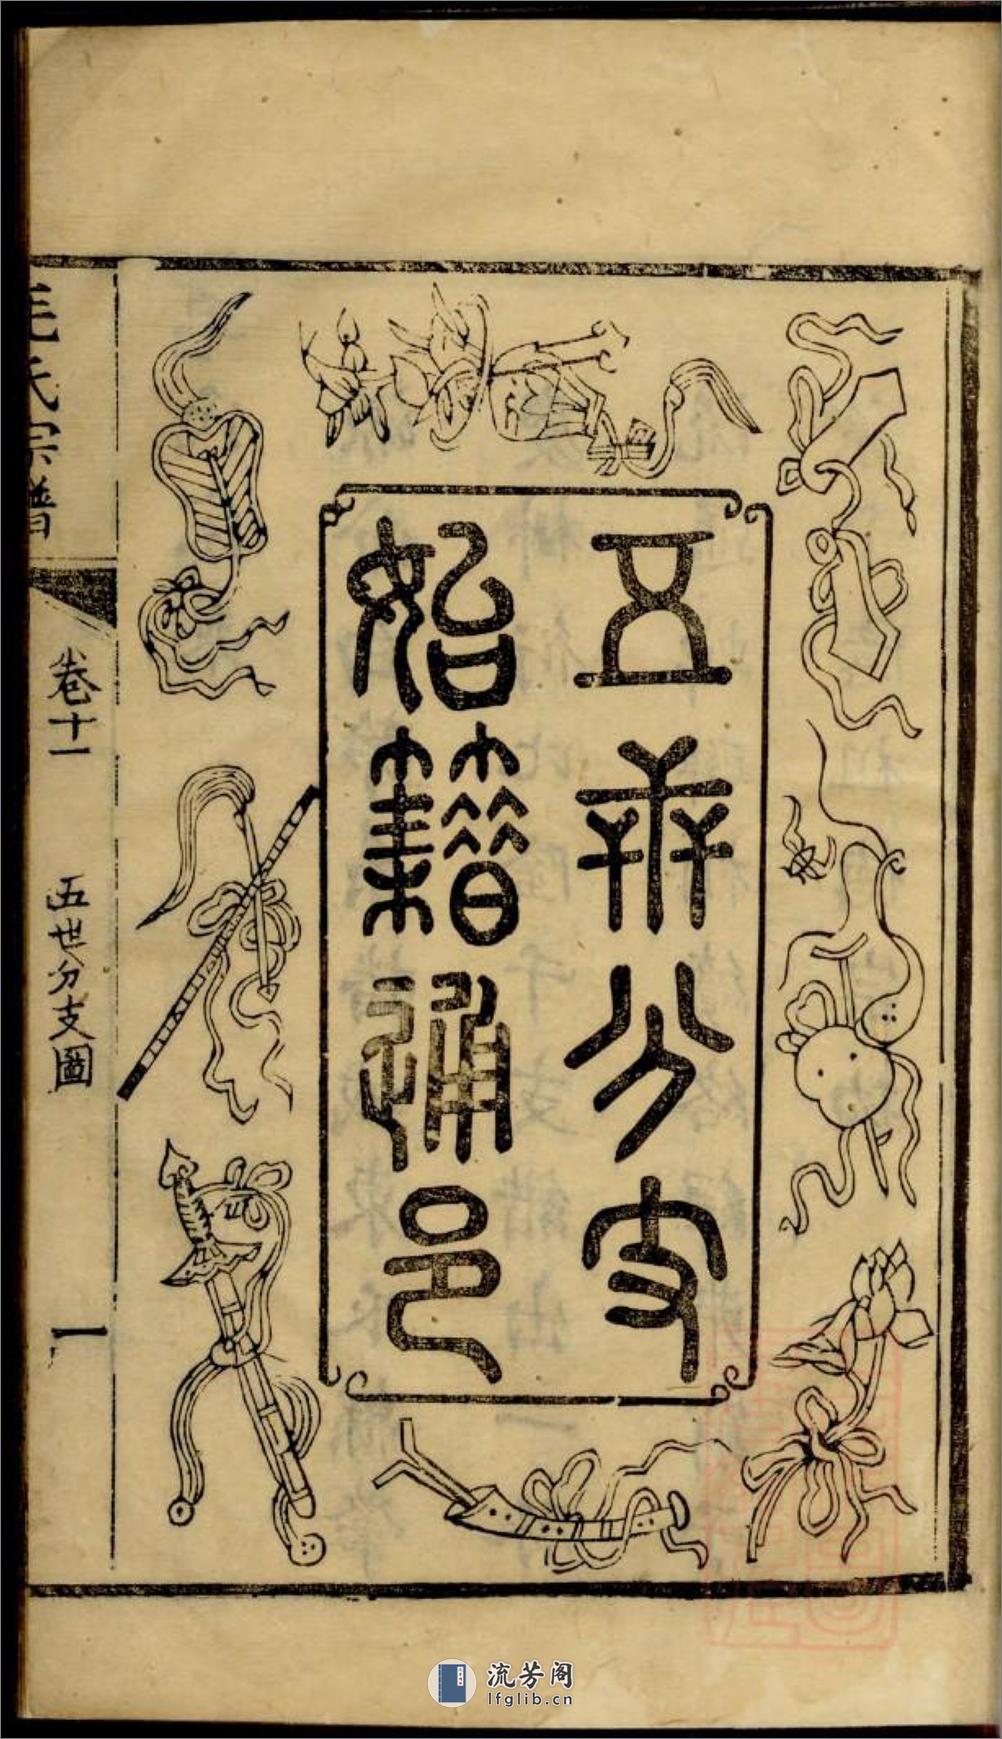 五世分支
始籍通邑
毛氏宗譜
卷十一
五世分支圖
一
流芳阁
lfglib.cn